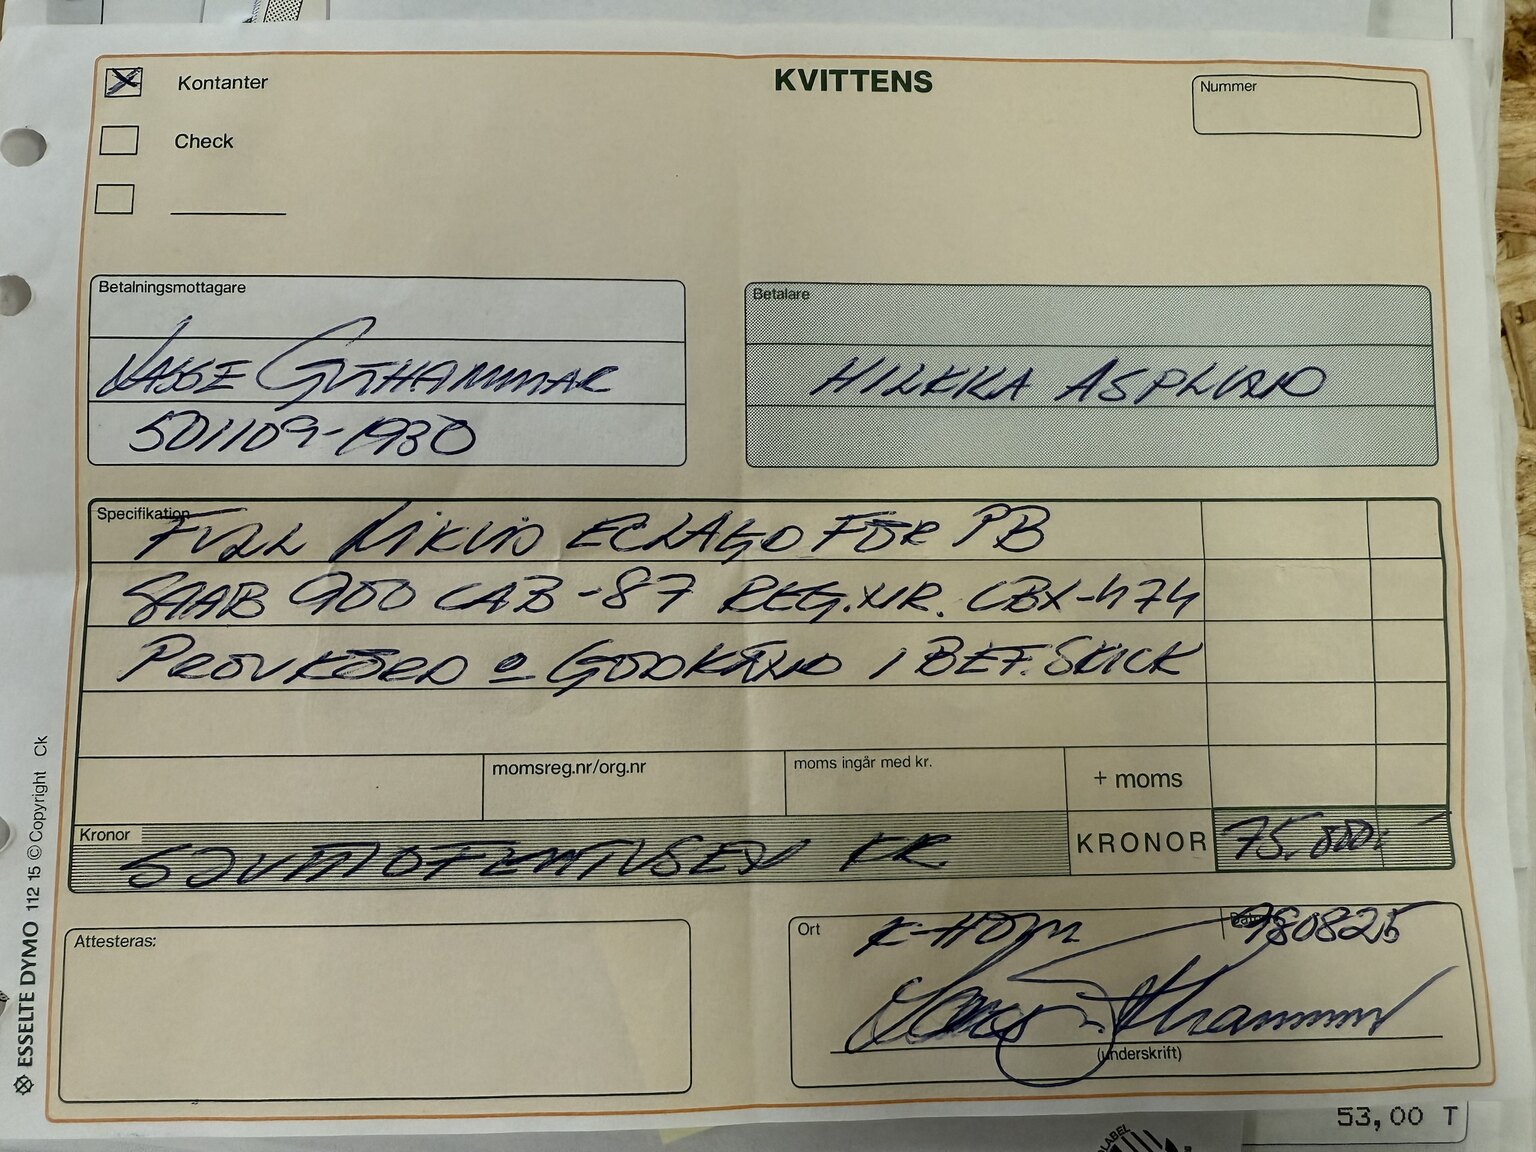 Kontanter
KVITTENS
Nummer
Check
Betalningsmottagare
LASSE GUTHAMMAR
501109-1930
Betalare
HILKKA ASPLUND
Specifikation
FULL LIKVID ERLAGD FÖR PB
SAAB 900 CAB -87 REG.NR. CBX-474
PROVKÖRD o GODKÄND I BEF. SKICK
momsreg.nr/org.nr
moms ingår med kr.
+ moms
Kronor
SJUTTIOFEMTUSEN KR
KRONOR
75.000:-
Attesteras:
Ort
K-HOLM
980825
(underskrift)
ESSELTE DYMO 112 15 © Copyright Ck
53,00 T